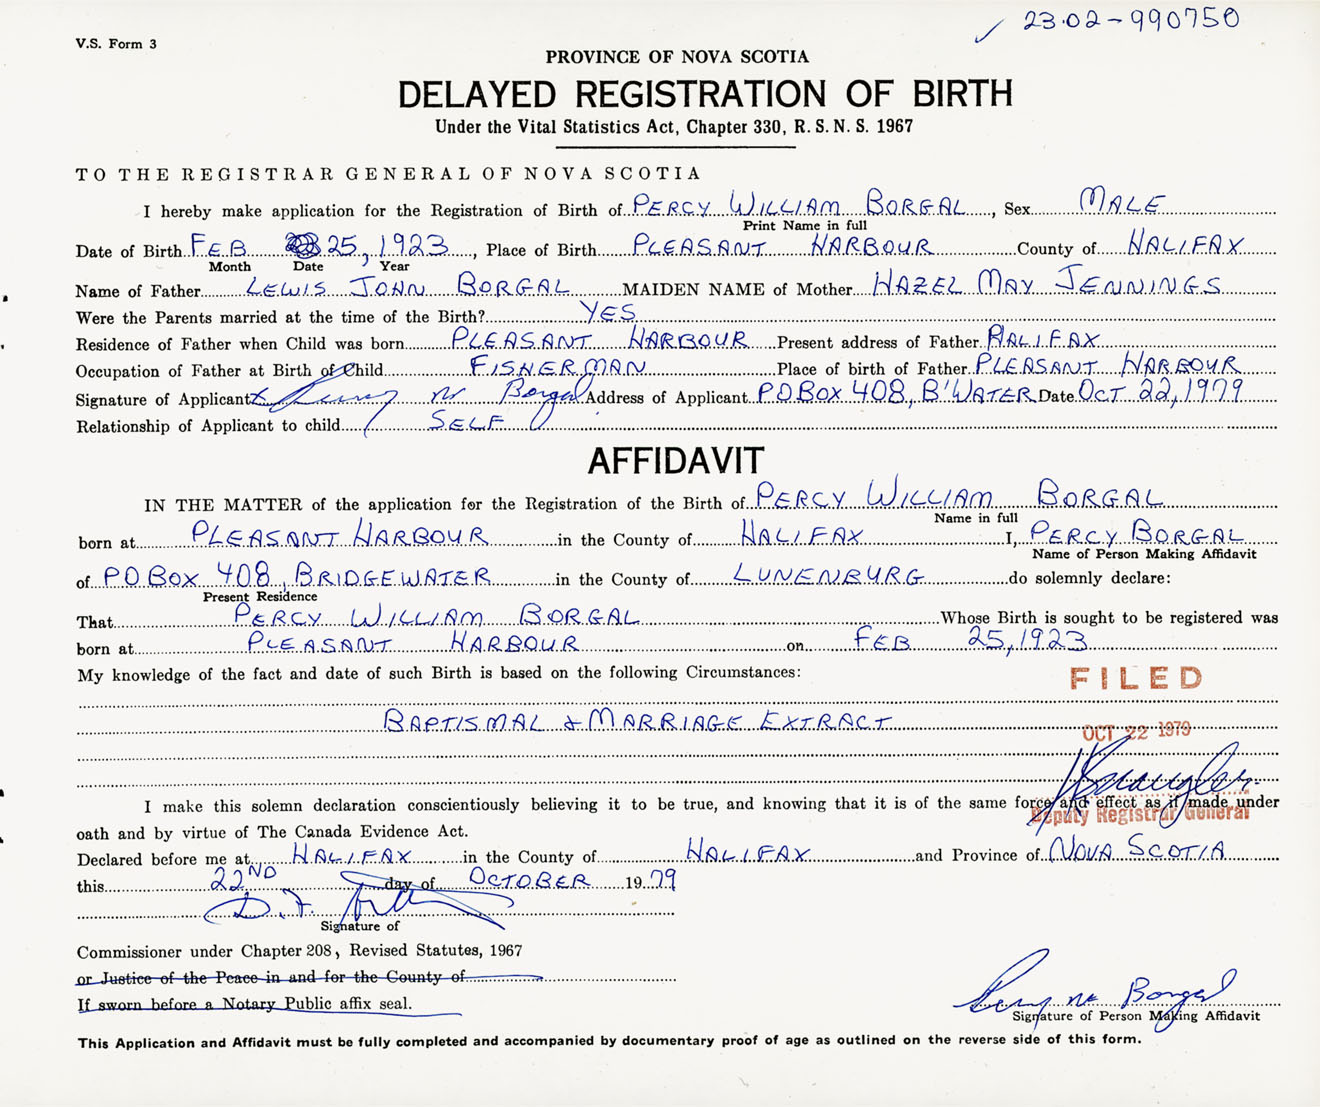 23·02-990750
V.S. Form 3
PROVINCE OF NOVA SCOTIA
DELAYED REGISTRATION OF BIRTH
Under the Vital Statistics Act, Chapter 330, R. S. N. S. 1967
TO THE REGISTRAR GENERAL OF NOVA SCOTIA
I hereby make application for the Registration of Birth of PERCY WILLIAM BORGAL, Sex MALE
Print Name in full
Date of Birth FEB 25, 1923, Place of Birth PLEASANT HARBOUR County of HALIFAX
Month Date Year
Name of Father LEWIS JOHN BORGAL MAIDEN NAME of Mother HAZEL MAY JENNINGS
Were the Parents married at the time of the Birth? YES
Residence of Father when Child was born PLEASANT HARBOUR Present address of Father HALIFAX
Occupation of Father at Birth of Child FISHERMAN Place of birth of Father PLEASANT HARBOUR
Signature of Applicant x Percy Wm Borgal Address of Applicant P.O BOX 408, B'WATER Date OCT 22, 1979
Relationship of Applicant to child SELF
AFFIDAVIT
IN THE MATTER of the application for the Registration of the Birth of PERCY WILLIAM BORGAL
Name in full
born at PLEASANT HARBOUR in the County of HALIFAX I, PERCY BORGAL
Name of Person Making Affidavit
of P.O BOX 408, BRIDGEWATER in the County of LUNENBURG do solemnly declare:
Present Residence
That PERCY WILLIAM BORGAL Whose Birth is sought to be registered was
born at PLEASANT HARBOUR on FEB 25, 1923
My knowledge of the fact and date of such Birth is based on the following Circumstances:
FILED
BAPTISMAL & MARRIAGE EXTRACT
OCT 22 1979
I make this solemn declaration conscientiously believing it to be true, and knowing that it is of the same force and effect as if made under
Deputy Registrar General
oath and by virtue of The Canada Evidence Act.
Declared before me at HALIFAX in the County of HALIFAX and Province of NOVA SCOTIA
this 22ND day of OCTOBER 1979
D. F.
Signature of
Commissioner under Chapter 208, Revised Statutes, 1967
or Justice of the Peace in and for the County of
If sworn before a Notary Public affix seal.
Percy Wm Borgal
Signature of Person Making Affidavit
This Application and Affidavit must be fully completed and accompanied by documentary proof of age as outlined on the reverse side of this form.